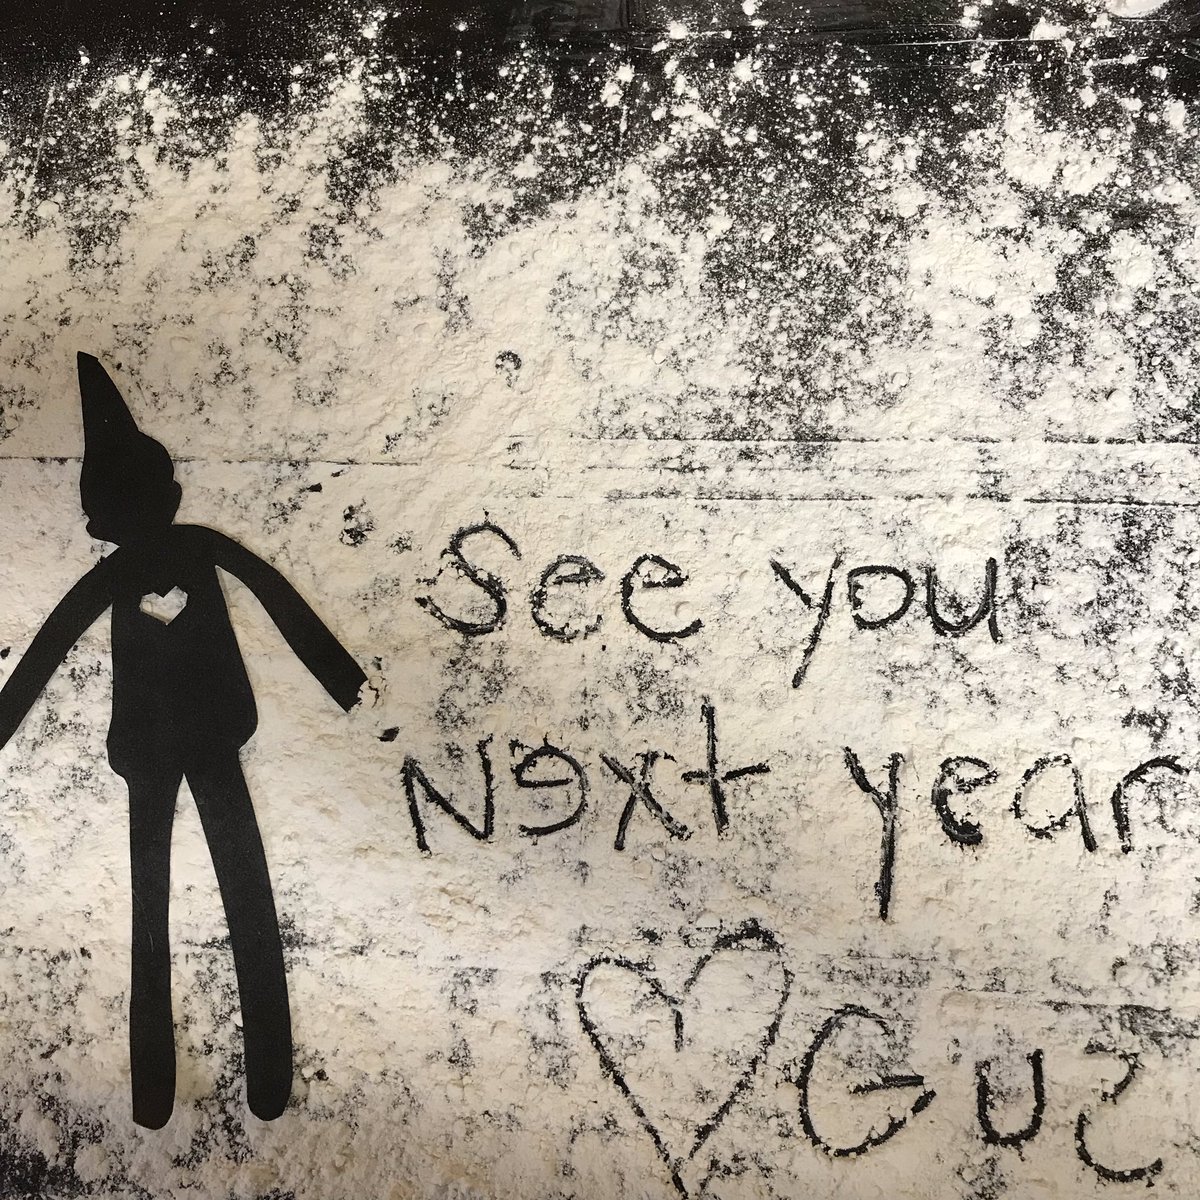 See you
Next year
Gus